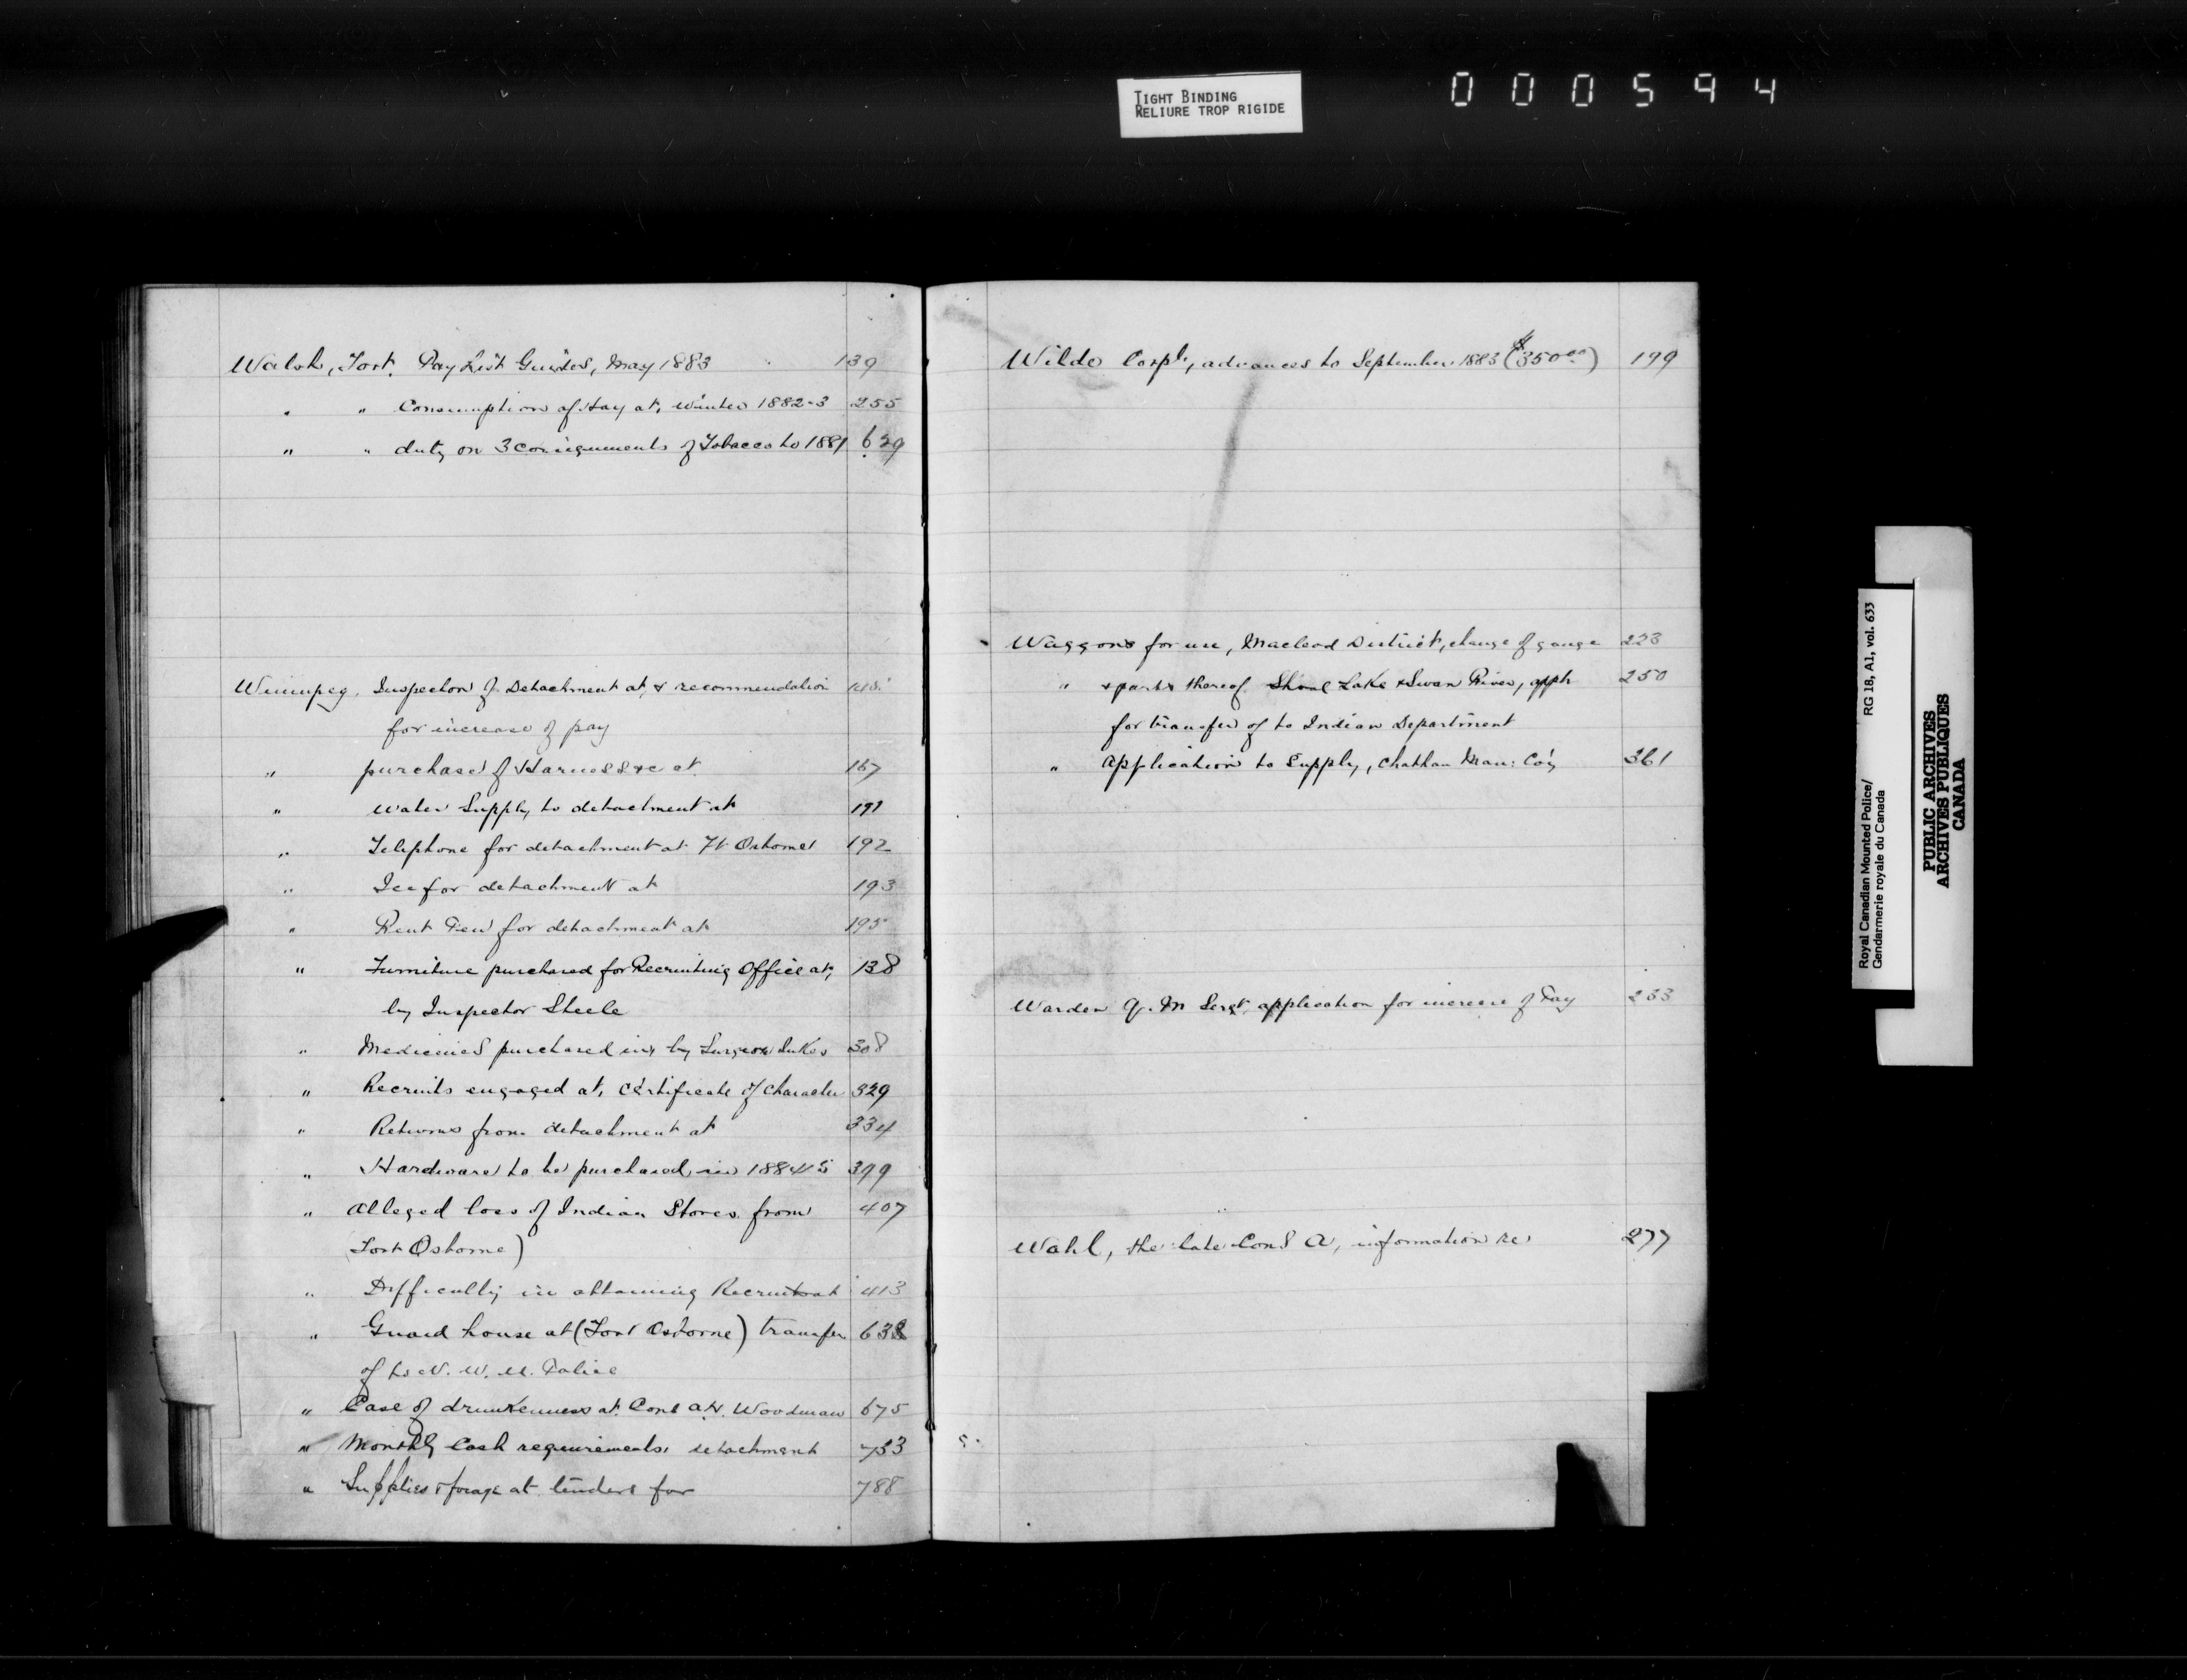 TIGHT BINDING
RELIURE TROP RIGIDE
000594
Walsh, Fort. Pay List Guides, May 1883 139
" " Consumption of Hay at, winter 1882-3 255
" " duty on 3 consignments of Tobacco to 1881 629
Winnipeg. Inspection of Detachment at, & recommendation
for increase of pay
" purchase of Harness &c at 167
" Water Supply to detachment at 191
" Telephone for detachment at Ft Osborne 192
" Ice for detachment at 193
" Rent for detachment at 195
" Furniture purchased for Recruiting Office at, 138
by Inspector Steele
" Medicines purchased in, by Surgeon Jukes 308
" Recruits engaged at, Certificate of Character 329
" Returns from detachment at 334
" Hardware to be purchased in 1884/5 399
" Alleged loss of Indian Stores from 407
(Fort Osborne)
" Difficulty in obtaining Recruits at 413
" Guard house at (Fort Osborne) transfer 638
of to N. W. M. Police
" Case of drunkenness at. Const A.H. Woodman 675
" Monthly Cash requirements, detachment 733
" Supplies & forage at tenders for 788
Wilde Corpl, advances to September 1883 ($350.00) 199
Waggons for use, Macleod District, change of gauge 223
" & parts thereof Shoal Lake & Swan River, appln 250
for transfer of to Indian Department
" Application to Supply, Chatham Man: Co'y 361
Warden Q. M Sergt application for increase of Pay 233
Wahl, the late Const A, information re 277
Royal Canadian Mounted Police/
Gendarmerie royale du Canada
RG 18, A1, vol. 633
PUBLIC ARCHIVES
ARCHIVES PUBLIQUES
CANADA